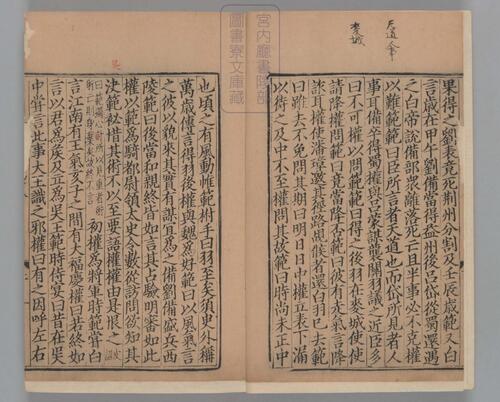 天道人事
麥城
宮内廳書陵部
圖書寮文庫藏
果得之劉表竟死荆州分割及壬辰歲範又白
言歲在甲午劉備當得益州後呂岱從蜀還遇
之白帝説備部衆離落死亡且半事必不克權
以難範範曰臣所言者天道也而岱所見者人
事耳備卒得蜀權與呂蒙謀襲關羽議之近臣多
曰不可權以問範範曰得之後羽在麥城使使
請降權問範曰竟當降否範曰彼有走氣言降
詐耳權使潘璋邀其徑路覘候者還白羽已去範
曰雖去不免問其期曰明日日中權立表下漏
以待之及中不至權問其故範曰時尚未正中
也頃之有風動帷範拊手曰羽至矣須臾外稱
萬歲傳言得羽後權與魏爲好範曰以風氣言
之彼以貌來其實有謀宜爲之備劉備盛兵西
陵範曰後當和親終皆如言其占驗明審如此
權以範爲騎都尉領太史令數從訪問欲知其
決範祕惜其術不以至要語權權由是恨之
初權爲將軍時範嘗白
言江南有王氣亥子之間有大福慶權曰若終如
言以君爲侯及立爲吳王範時侍宴曰昔在吳
中嘗言此事大王識之邪權曰有之因呼左右